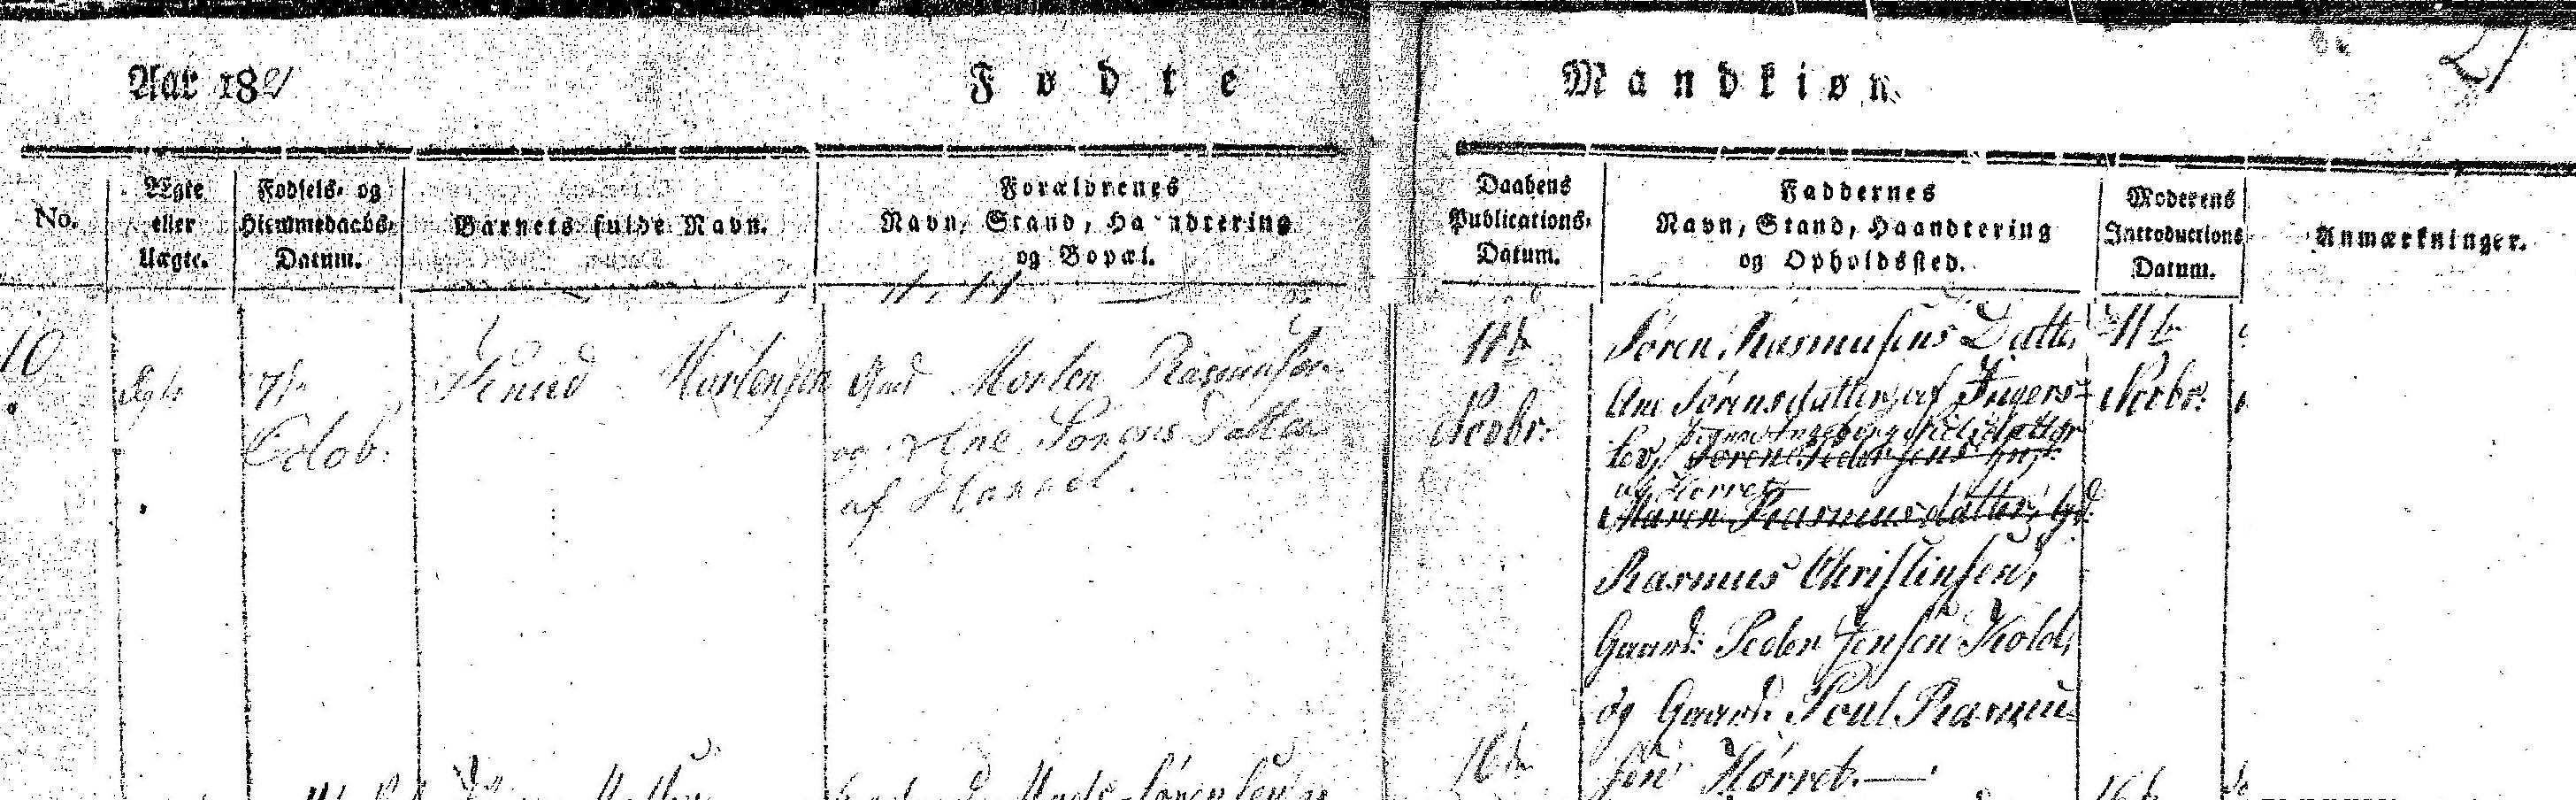 Aar 1821
Fødte
Mandkiøn.
21
No.
Ægte
eller
Uægte.
Fødsels- og
Hiemmedaabs-
Datum.
Barnets fulde Navn.
Forældrenes
Navn, Stand, Haandtering
og Bopæl.
Daabens
Publications-
Datum.
Faddernes
Navn, Stand, Haandtering
og Opholdssted.
Moderens
Introductions
Datum.
Anmærkninger.
10
Ægte
7de
Octob:
Knud Mortensen
Gmd Morten Rasmusen
og Ane Sørens Datter
af Hørret.
11te
Novbr:
Søren Rasmusens Datter
Ane Sørensdatter, af Ingers-
lev,
Sørene Pedersens
af Hørret
Maren Rasmusdatter,
Rasmus Christensen,
Gaard: Peder Jensen Kold,
og Gaard: Poul Rasmu-
sen Hørret.
11te
Novbr:
16de